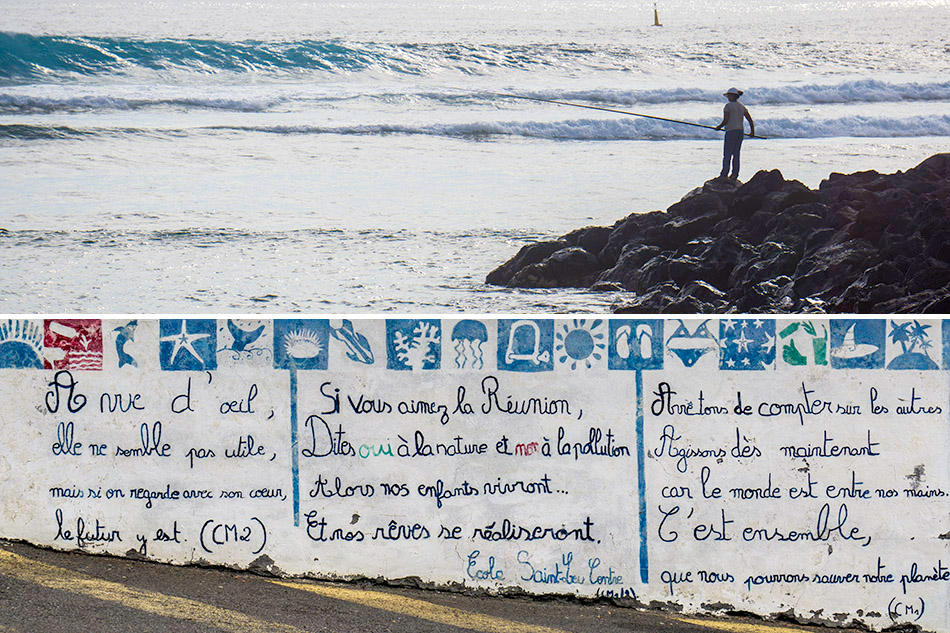 A vue d'oeil,
elle ne semble pas utile,
mais si on regarde avec son coeur,
le futur y est. (CM2)
Si vous aimez la Réunion,
Dites oui à la nature et non à la pollution
Alors nos enfants vivront...
Et nos rêves se réaliseront.
Ecole Saint-Leu Centre
Arrêtons de compter sur les autres
Agissons dès maintenant
car le monde est entre nos mains.
C'est ensemble,
que nous pourrons sauver notre planète
(CM1)